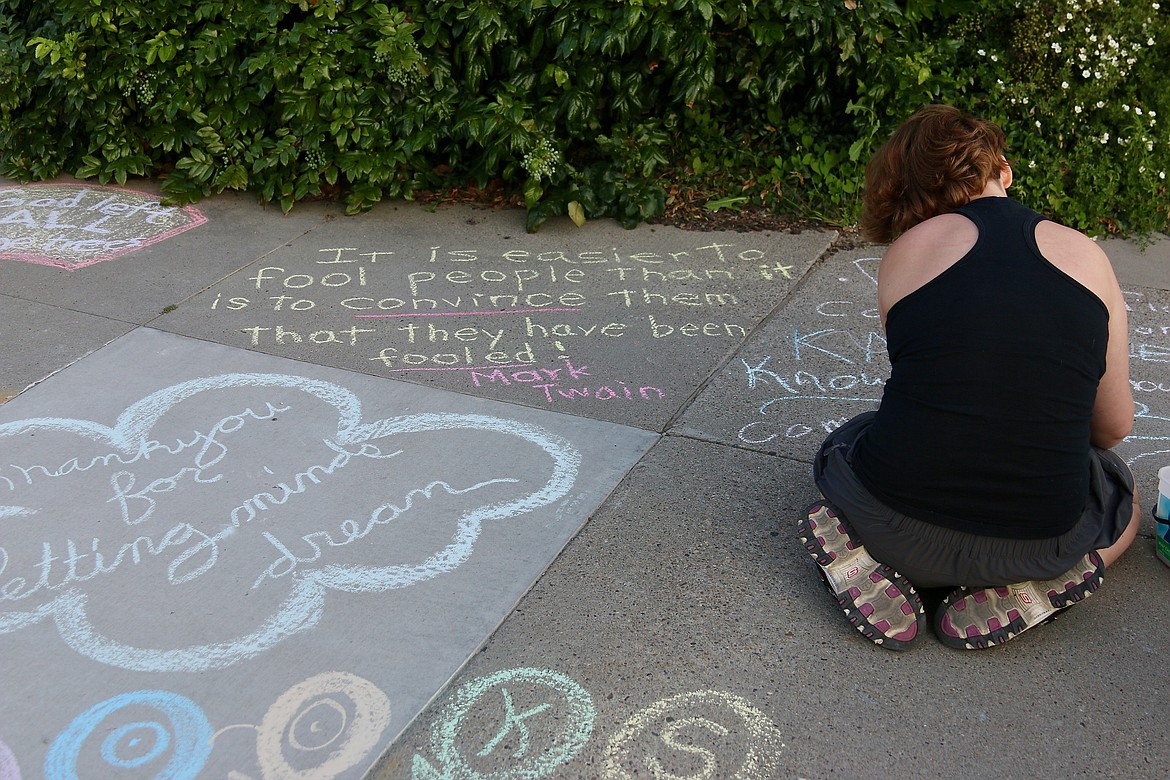 Good left
ALL
the west
It is easier To
fool people Than it
is to convince Them
That they have been
fooled!
Mark
Twain
Thankyou
for
letting minds
dream
Know
K
S